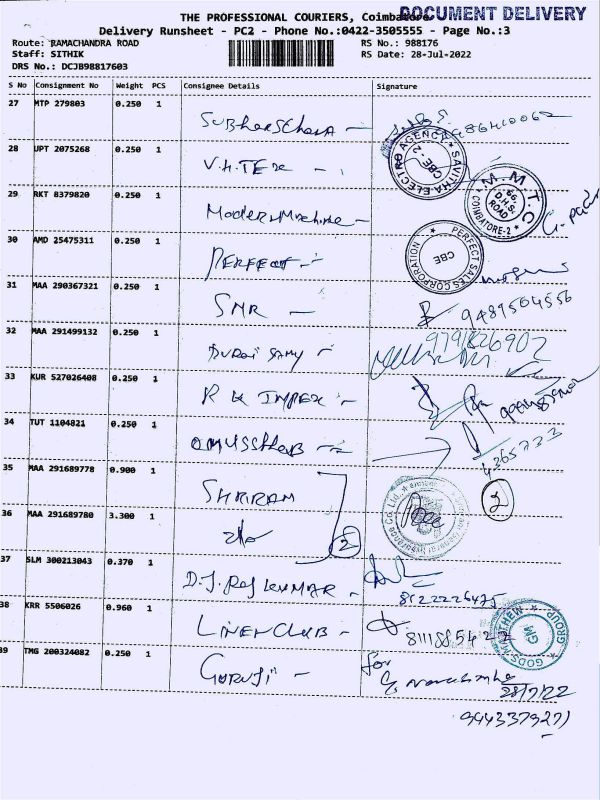 THE PROFESSIONAL COURIERS, Coimbatore
DOCUMENT DELIVERY
Delivery Runsheet - PC2 - Phone No.:0422-3505555 - Page No.:3
Route: RAMACHANDRA ROAD
RS No.: 988176
Staff: SITHIK
RS Date: 28-Jul-2022
DRS No.: DCJB98817603
S No Consignment No/ Weight PCS Consignee Details Signature
27 MTP 279803 0.250 1
28 UPT 2075268 0.250 1 V.H.TEX
SAVITHA ELECTRO AGENCY CBE - 2
29 RKT 8379820 0.250 1 Modern Machine
M.M.T.C 66, D.H.S. ROAD COIMBATORE-2
30 AMD 25475311 0.250 1 PERFECT
PERFECT SALES CORPORATION CBE
31 MAA 290367321 0.250 1 SNR 9489504556
32 MAA 291499132 0.250 1 Durai Samy 9791826902
33 KUR 527026408 0.250 1 R K IMPEX
34 TUT 1104821 0.250 1
35 MAA 291689778 0.900 1 SHRIRAM
General Insurance Co. Ltd.
2
36 MAA 291689780 3.300 1
2
37 SLM 300213043 0.370 1 D.J. RAJKUMAR 8122226475
38 KRR 5506026 0.960 1 LINEN CLUB
GODS MATTHEW GROUP GM
39 TMG 200324082 0.250 1 GURUJI
for
28/7/22